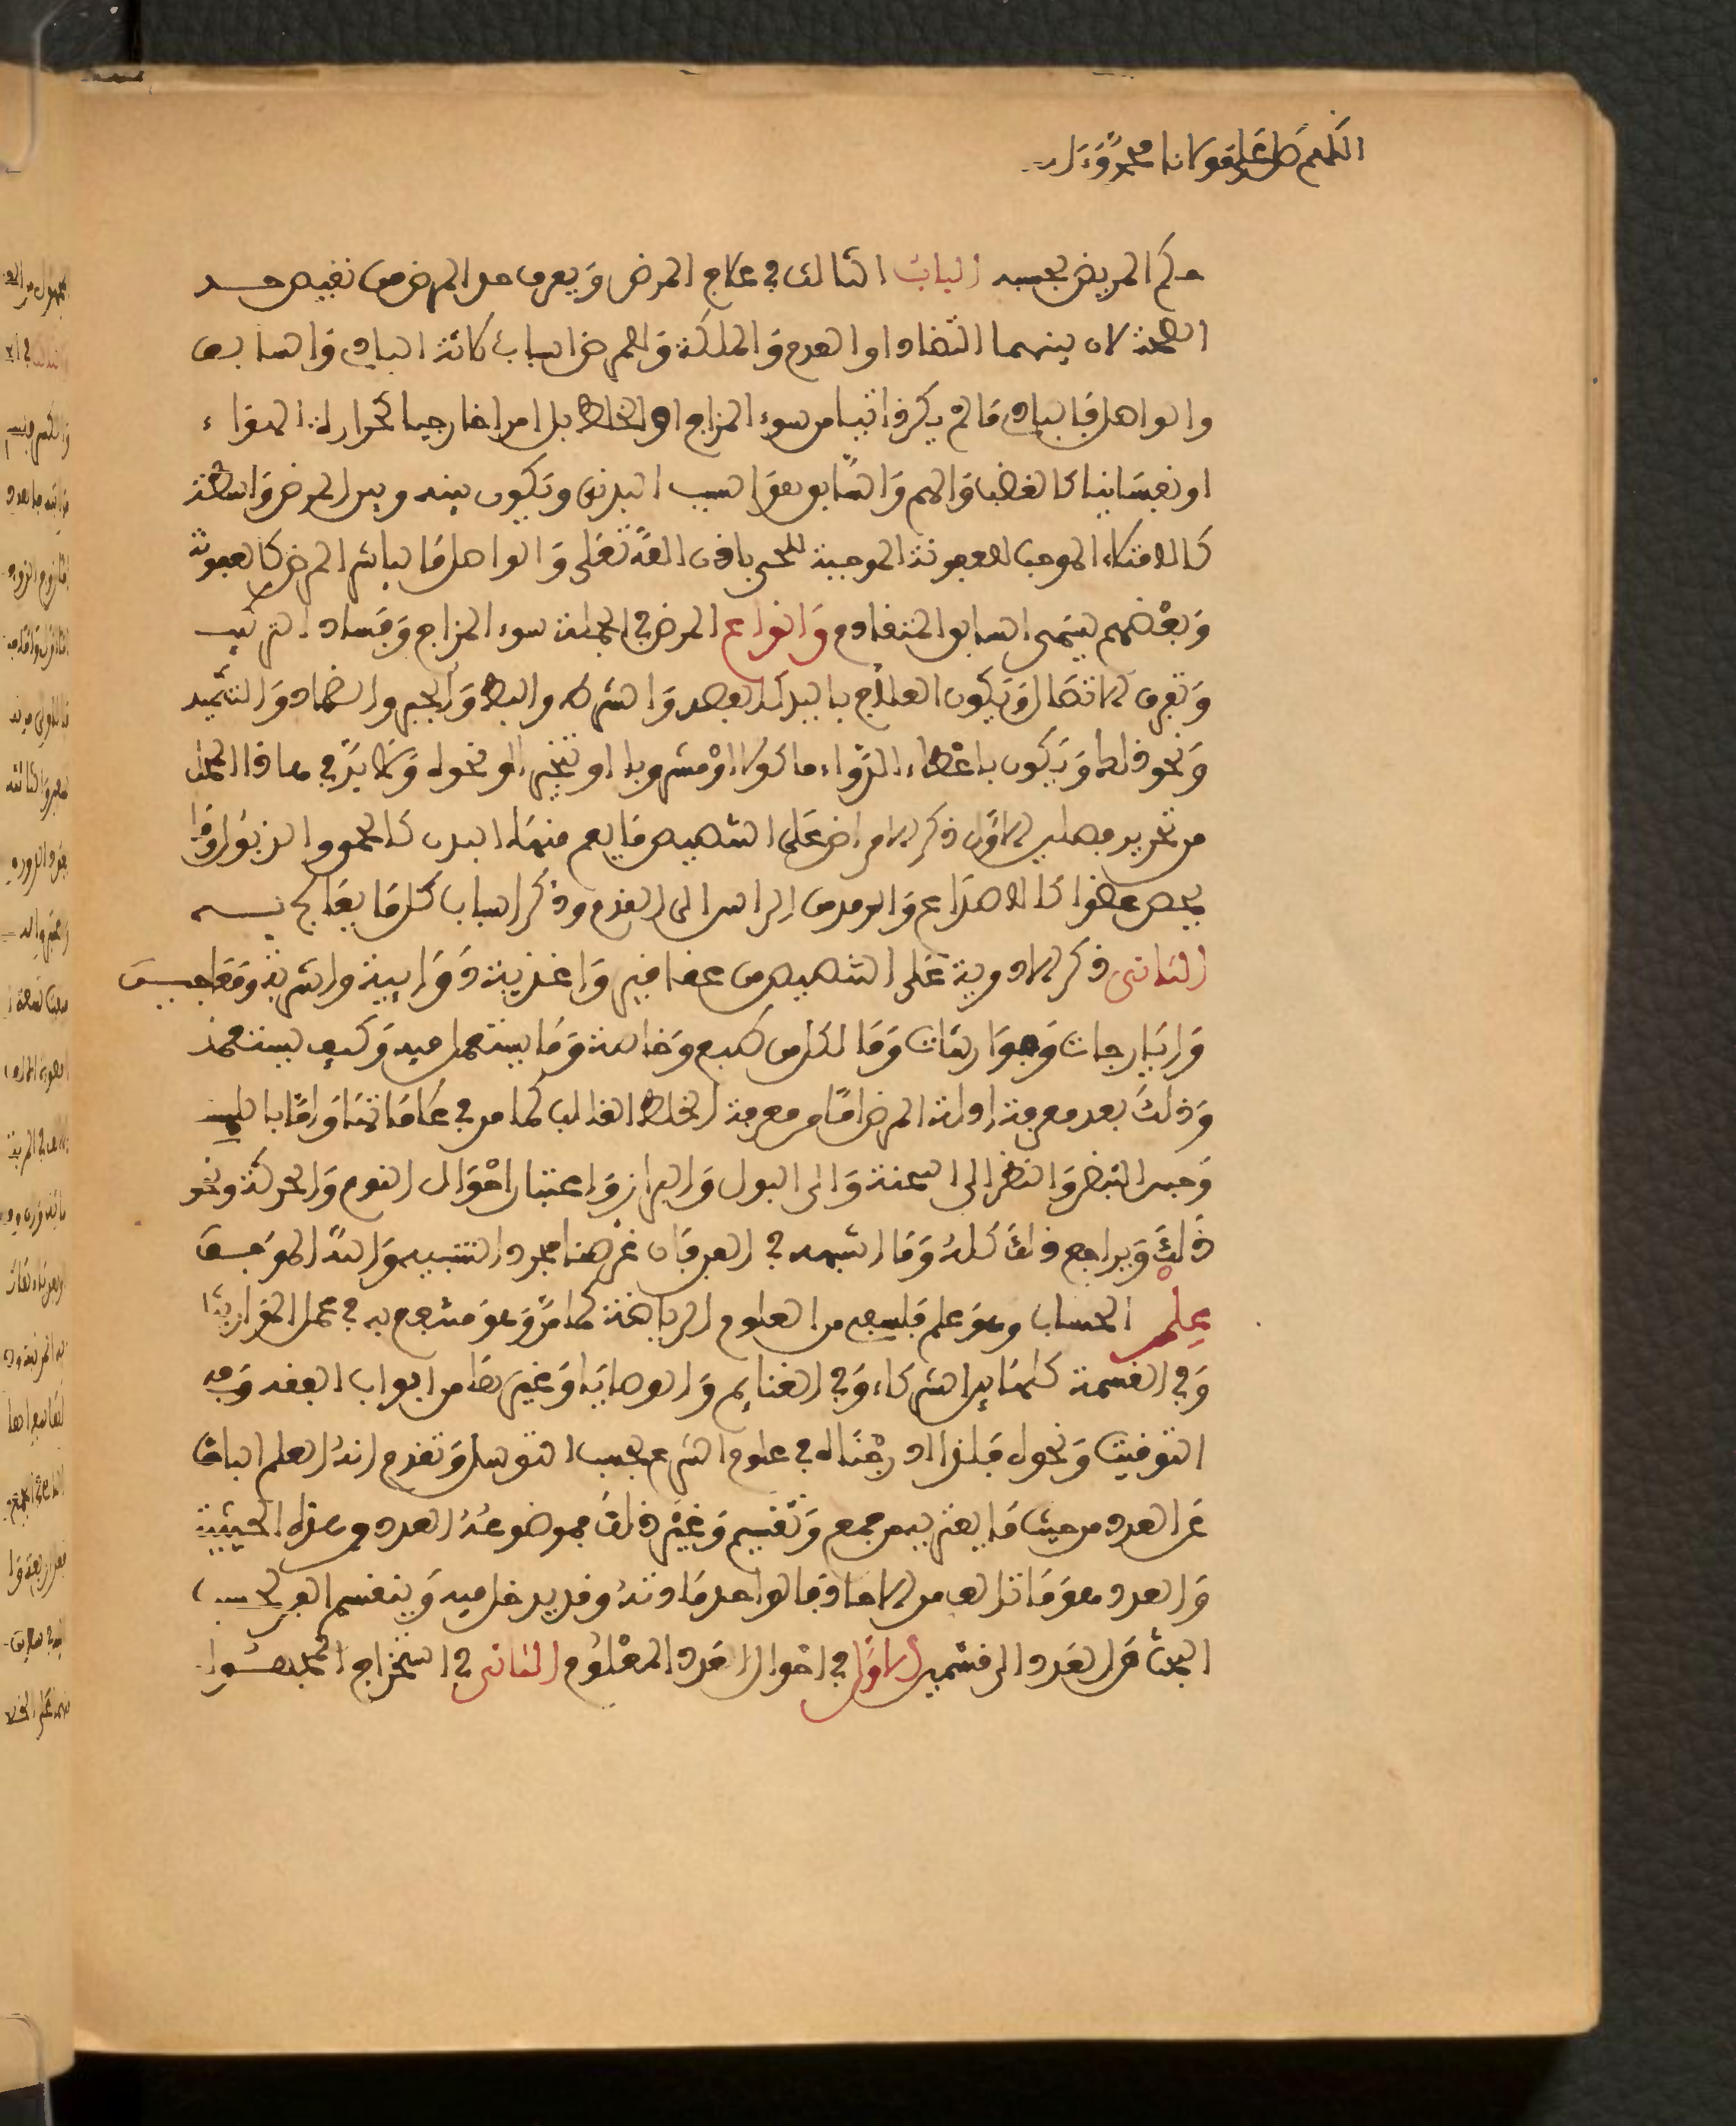 اللهم صل على مولانا محمد وءاله
حكم المريض بحسبه الباب الثالث في علاج المرض ويعرف حد المرض من نقيض حد
الصحة لان بينهما التضاد او العدم والملكة وللمرض اسباب ثلاثة البادي والسابق
والواصل فالبادي ما لم يكن ناشيا من سوء المزاج او الخلط بل امرا خارجيا كحرارة الهواء
او نفسانيا كالغضب والهم والسابق هو السبب البدني ويكون بينه وبين المرض واسطة
كالامتلاء الموجب للعفونة الموجبة للحمى باذن الله تعلى والواصل ما باشر المرض كالعفونة
وبعضهم يسمى السابق المتقادم وانواع المرض في الجملة سوء المزاج وفساد التركيب
وتفرق الاتصال ويكون العلاج باليد كالفصد والشرط والبط والجبر والضماد والتكميد
ونحو ذلك ويكون باعطاء الدواء ماكولا او مشروبا او تبخير او نحوه ولابد في هاذا المحل
من تحرير مطلبين الاول ذكر الامراض على التفصيل ما يعم منها البدن كالحمى و او ما
يخص عضوا كالصداع والرمد من الراس الى القدم وذكر اسباب كل وما يعالج به
الثاني ذكر الادوية على التفصيل من عقاقير واغذية و واشربة ومعاجين
وايارجات وجوارشات وما لكل من طبع وخاصة وما يستعمل فيه وكيف يستعمل
وذلك بعد معرفة ادلة المرض اما من معرفة الخلط الغالب كما مر في علاماتها واما باللمس
وجس النبض والنظر الى السحنة والى البول والبراز واعتبار احوال النوم والحركة ونحو
ذلك ويراجع ذلك كله وما اشبهه في غرضنا مجرد التنبيه والله الموفق
علم الحساب وهو علم من العلوم الرياضة كما مر وهو منتفع به في عمل المواريث
وفي القسمة كلها بين الشركاء وفي الغنايم والوصايا وغيرها من ابواب الفقه وفي
التوقيت ونحوه فلذا ادرجناه في علوم الشرع بحسب التوسل وتقدم انه العلم الباحث
عن العدد من حيث ما يعتريه من جمع وتقسيم وغير ذلك فموضوعه العدد من هذه الحيثية
والعدد هو ما تالف من الاحاد فالواحد مادته وقد يدخل فيه وينقسم الفن بحسب
البحث عن العدد الى قسمين الاول في احوال العدد المعلوم الثاني في استخراج المجهول